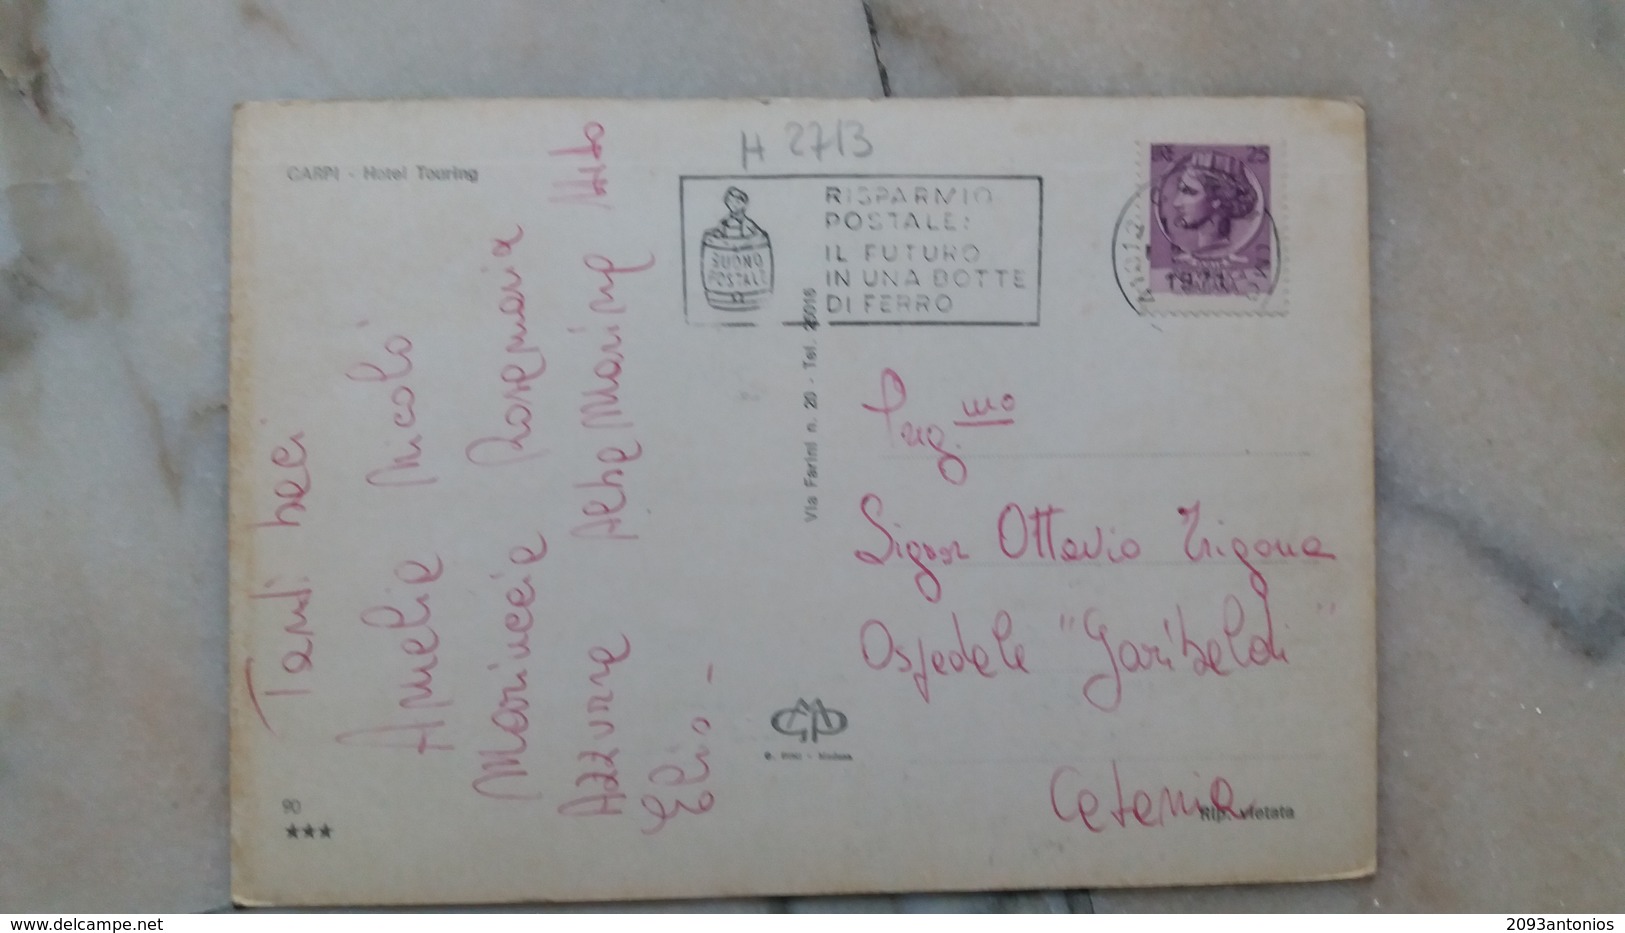 CARPI - Hotel Touring
H 2713
RISPARMIO
POSTALE:
IL FUTURO
IN UNA BOTTE
DI FERRO
BUONO
POSTALE
25
Via Farini n. 20 - Tel.
Tanti baci
Amelia Nicolò
Marinccia Rosemaria
Azzurra Alba Marina
Elio -
Preg.mo
Signor Ottavio Trigona
Ospedale "Garibaldi"
Catania
Rip. vietata
90
***
2093antonios